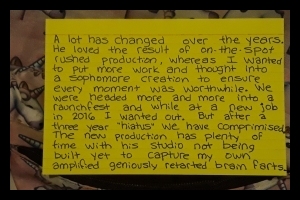 A lot has changed over the years.
He loved the result of on-the-spot
rushed production, whereas I wanted
to put more work and thought into
a sophomore creation to ensure
every moment was worthwhile. We
were headed more and more into a
raunchfest and while at a new job
in 2016 I wanted out. But after a
three year "hiatus" we have compromised.
The new production has plenty of
time with his studio not being
built yet to capture my own
amplified geniously retarted brain farts.